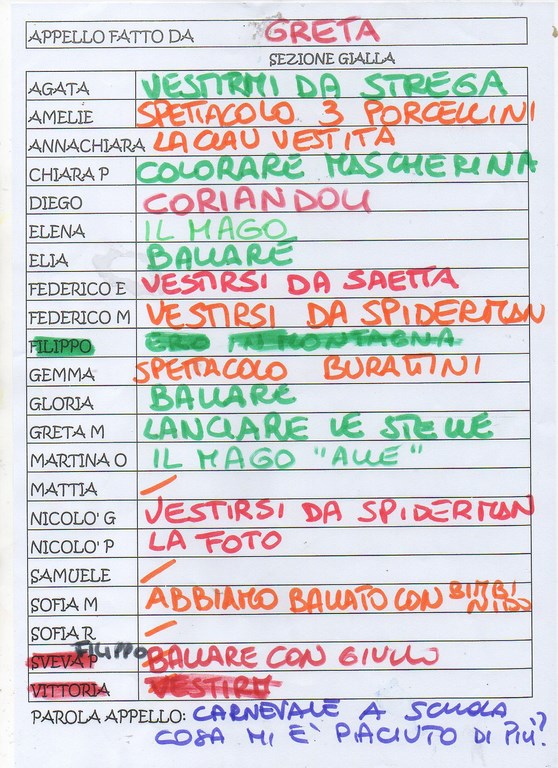 APPELLO FATTO DA GRETA
SEZIONE GIALLA
AGATA VESTIRMI DA STREGA
AMELIE SPETTACOLO 3 PORCELLINI
ANNACHIARA LA CLAU VESTITA
CHIARA P COLORARE MASCHERINA
DIEGO CORIANDOLI
ELENA IL MAGO
ELIA BALLARE
FEDERICO E VESTIRSI DA SAETTA
FEDERICO M VESTIRSI DA SPIDERMAN
FILIPPO ERO IN MONTAGNA
GEMMA SPETTACOLO BURATTINI
GLORIA BALLARE
GRETA M LANCIARE LE STELLE
MARTINA O IL MAGO "ALLE"
MATTIA /
NICOLO' G VESTIRSI DA SPIDERMAN
NICOLO' P LA FOTO
SAMUELE /
SOFIA M ABBIAMO BALLATO CON BIMBI NIDO
SOFIA R /
SVEVA P FILIPPO BALLARE CON GIULLO
VITTORIA VESTIRM
PAROLA APPELLO: CARNEVALE A SCUOLA
COSA MI È PIACIUTO DI PIÙ?